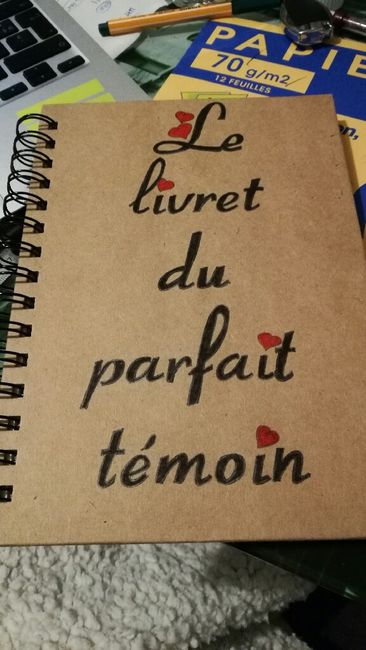 PAPIE
70 g/m2/
12 FEUILLES
Le
livret
du
parfait
témoin